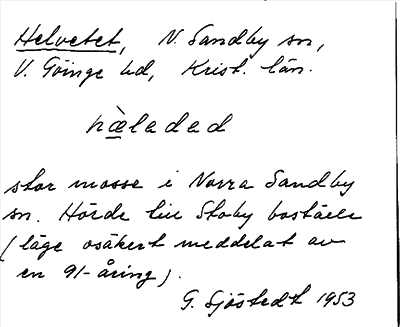 Helvetet, N. Sandby sn,
V. Göinge hd, Krist. län.
hæ̀leded
stor mosse i Norra Sandby
sn. Hörde till Stoby boställe
(läge osäkert meddelat av
en 91-åring).
G. Sjöstedt 1953